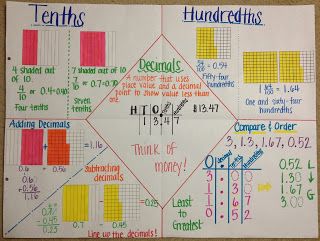 Tenths
4 shaded out
of 10
4/10 or 0.4
Four tenths
7 shaded out of
10.
7/10 or 0.7
Seven
tenths
Hundredths
54/100 = 0.54
Fifty-four
hundredths
1 64/100 = 1.64
One and sixty-four
hundredths
Decimals
A number that uses
place value and a decimal
point to show value less than
one.
H T O . Tenths Hundredths
1 3 . 4 7
$13.47
Think of
money!
Adding Decimals
0.6
0.56
= 1.16
0.6
+ 0.56
1.16
Subtracting
decimals
0.7
0.45
= 0.25
Line up the decimals!
Compare & Order
3, 1.3, 1.67, 0.52
O . Tenths Hundredths
3 . 0 0
1 . 3 0
1 . 6 7
0 . 5 2
0.52 L
1.3
1.67
3 G
Least to
Greatest